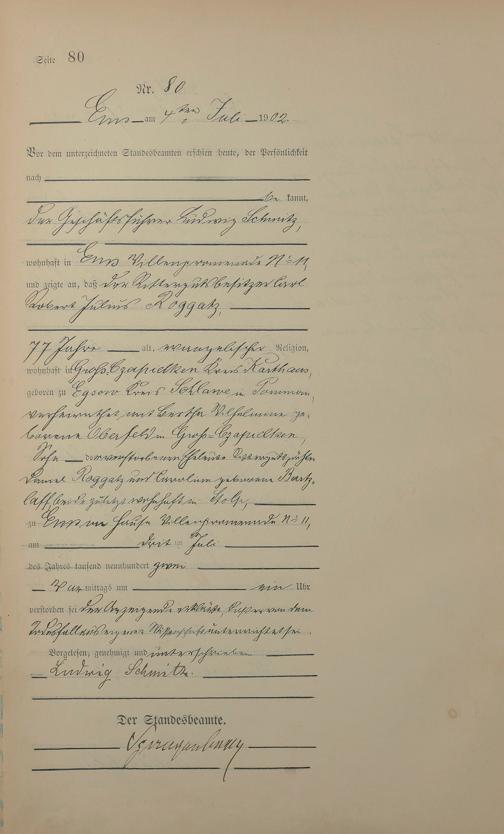 Seite 80
Nr. 80
Ems am 4ten Juli 1902
Vor dem unterzeichneten Standesbeamten erschien heute, der Persönlichkeit
nach
be kannt,
der Geschäftsführer Ludwig Schmitz,
wohnhaft in Ems Villenpromenade No 11,
und zeigte an, daß der Rittergutsbesitzer Carl
Robert Julius Roggatz,
77 Jahre alt, evangelischer Religion,
wohnhaft in Groß Czapielken Kreis Karthaus,
geboren zu Egsow Kreis Schlawe in Pommern,
verheirathet mit Bertha Wilhelmine ge-
borene Oberfeld in Groß-Czapielken,
Sohn der verstorbenen Eheleute
Daniel Roggatz und Caroline geborene
beide zuletzt wohnhaft in Stolp,
zu Ems im Hause Villenpromenade No 11,
am dritten Juli
des Jahres tausend neunhundert zwei
Vor mittags um ein Uhr
verstorben sei. Der Anzeigende erklärte, daß er von dem
Todesfall aus eigener Wissenschaft unterrichtet sei.
Vorgelesen, genehmigt und unterschrieben
Ludwig Schmitz.
Der Standesbeamte.